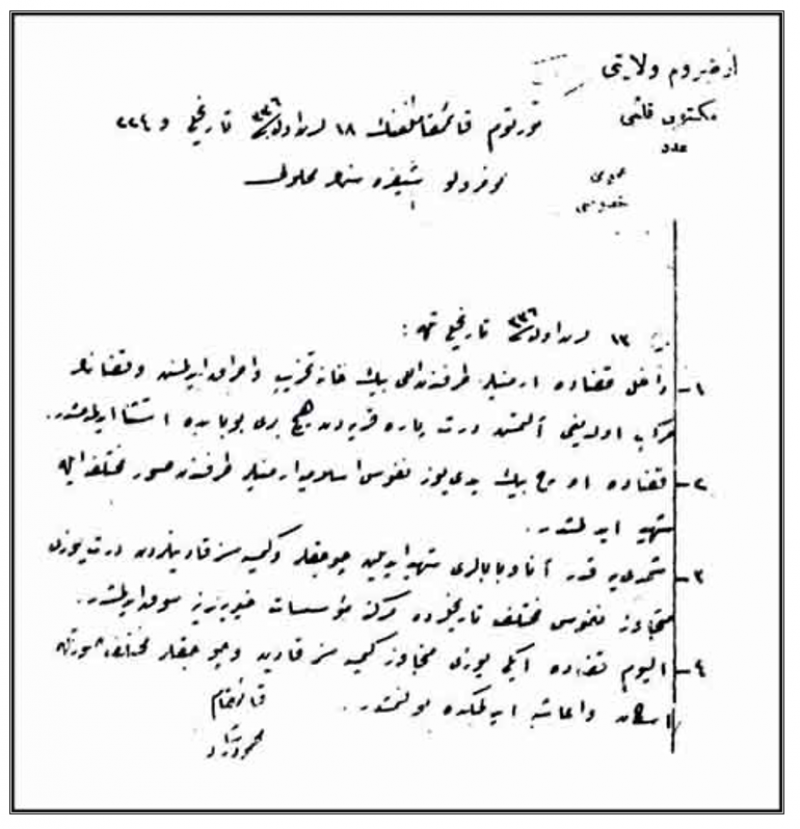 ارضروم ولايتى
مكتوبى قلمى
عدد
عمومى
خصوصى
تورتوم قائممقاملغنك ١٨ اول ٣٣٦ تاريخلى و ٢٢٤
نومرولو شيفره محلولى
١٣ اول ٣٣٦ تاريخلى
١- داخل قضاده ارمنيلر طرفندن بيك خانه تخريب و احراق ايدلمش و قضانك
مركب اولديغى آلتمش درت پاره قريه دن هيچ برى بو بابده استثنا ايدلمامشدر.
٢- قضاده اوچ بيك يدى يوز نفوس اسلاميه ارمنيلر طرفندن صور مختلفه ايله
شهيد ايدلمشدر.
٣- شمدى يه قدر آنا و بابالرى شهيد ايديلن چوجقلر و كيمسه سز قادينلردن درت يوزى
متجاوز نفوس مختلف تاريخلرده مركز مؤسسات خيريه سنه سوق ايدلمشدر.
٤- اليوم قضاده ايكى يوزى متجاوز كيمسه سز قادين و چوجقلر مختلف صورتله
اسكان و اعاشه ايدلمكده بولنمشدر.
قائممقام